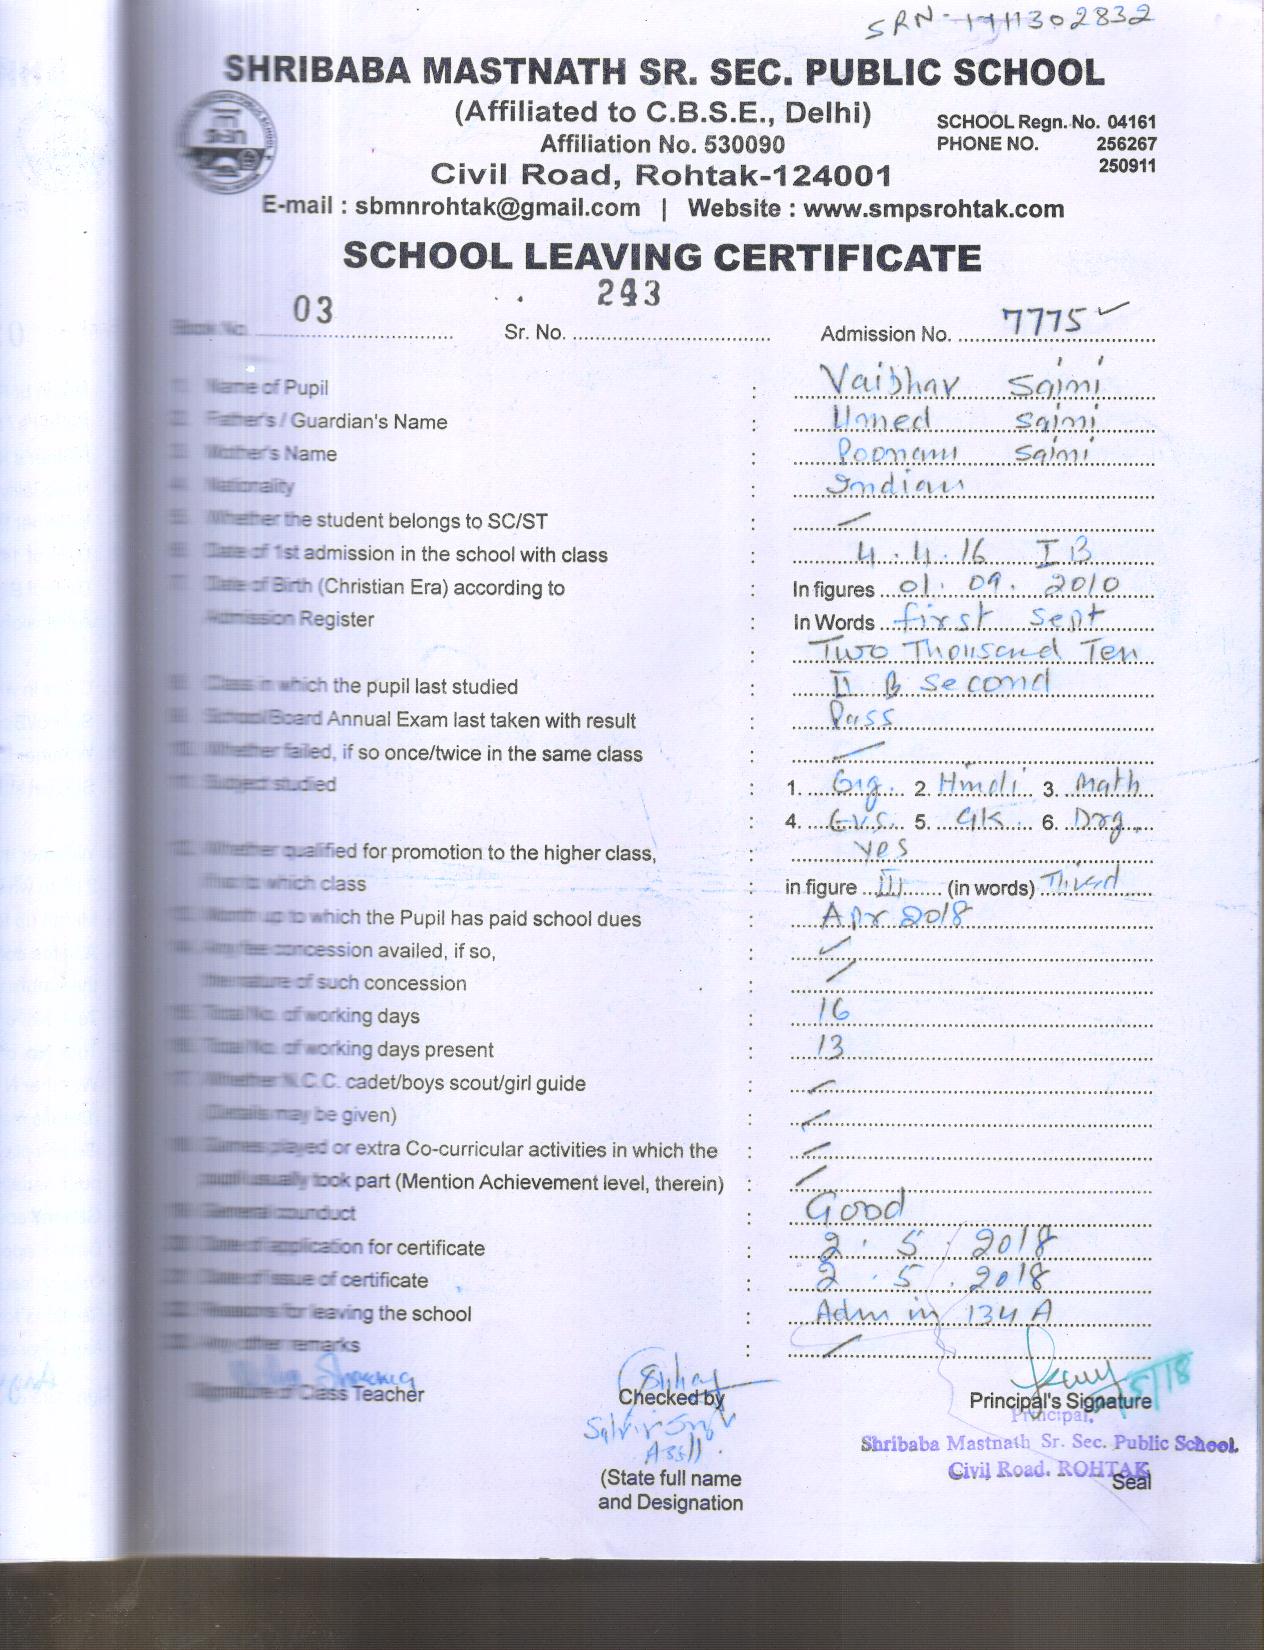 SRN-1711302832
SHRIBABA MASTNATH SR. SEC. PUBLIC SCHOOL
(Affiliated to C.B.S.E., Delhi)
SCHOOL Regn. No. 04161
Affiliation No. 530090
PHONE NO. 256267
250911
Civil Road, Rohtak-124001
E-mail : sbmnrohtak@gmail.com | Website : www.smpsrohtak.com
SCHOOL LEAVING CERTIFICATE
Book No. 03 Sr. No. 243 Admission No. 7775
1. Name of Pupil : Vaibhav Saini
2. Father's / Guardian's Name : Umed Saini
3. Mother's Name : Poonam Saini
4. Nationality : Indian
5. Whether the student belongs to SC/ST :
6. Date of 1st admission in the school with class : 4.4.16 I B
7. Date of Birth (Christian Era) according to : In figures 01.09.2010
Admission Register : In Words first Sept
: Two Thousand Ten
8. Class in which the pupil last studied : II B Second
9. School/Board Annual Exam last taken with result : Pass
10. Whether failed, if so once/twice in the same class :
11. Subject studied : 1. Eng. 2. Hindi 3. Math
: 4. E.V.S. 5. GK 6. Drg.
12. Whether qualified for promotion to the higher class, : Yes
if so to which class : in figure III (in words) Third
13. Month up to which the Pupil has paid school dues : Apr 2018
14. Any fee concession availed, if so, :
the nature of such concession :
15. Total No. of working days : 16
16. Total No. of working days present : 13
17. Whether N.C.C. cadet/boys scout/girl guide :
(Details may be given) :
18. Games played or extra Co-curricular activities in which the :
pupil usually took part (Mention Achievement level, therein) :
19. General counduct : Good
20. Date of application for certificate : 2.5.2018
21. Date of issue of certificate : 2.5.2018
22. Reasons for leaving the school : Adm in 134 A
23. Any other remarks :
Sharma
Signature of Class Teacher Checked by Principal's Signature
Principal,
Shribaba Mastnath Sr. Sec. Public School
Civil Road. ROHTAK
(State full name Seal
and Designation